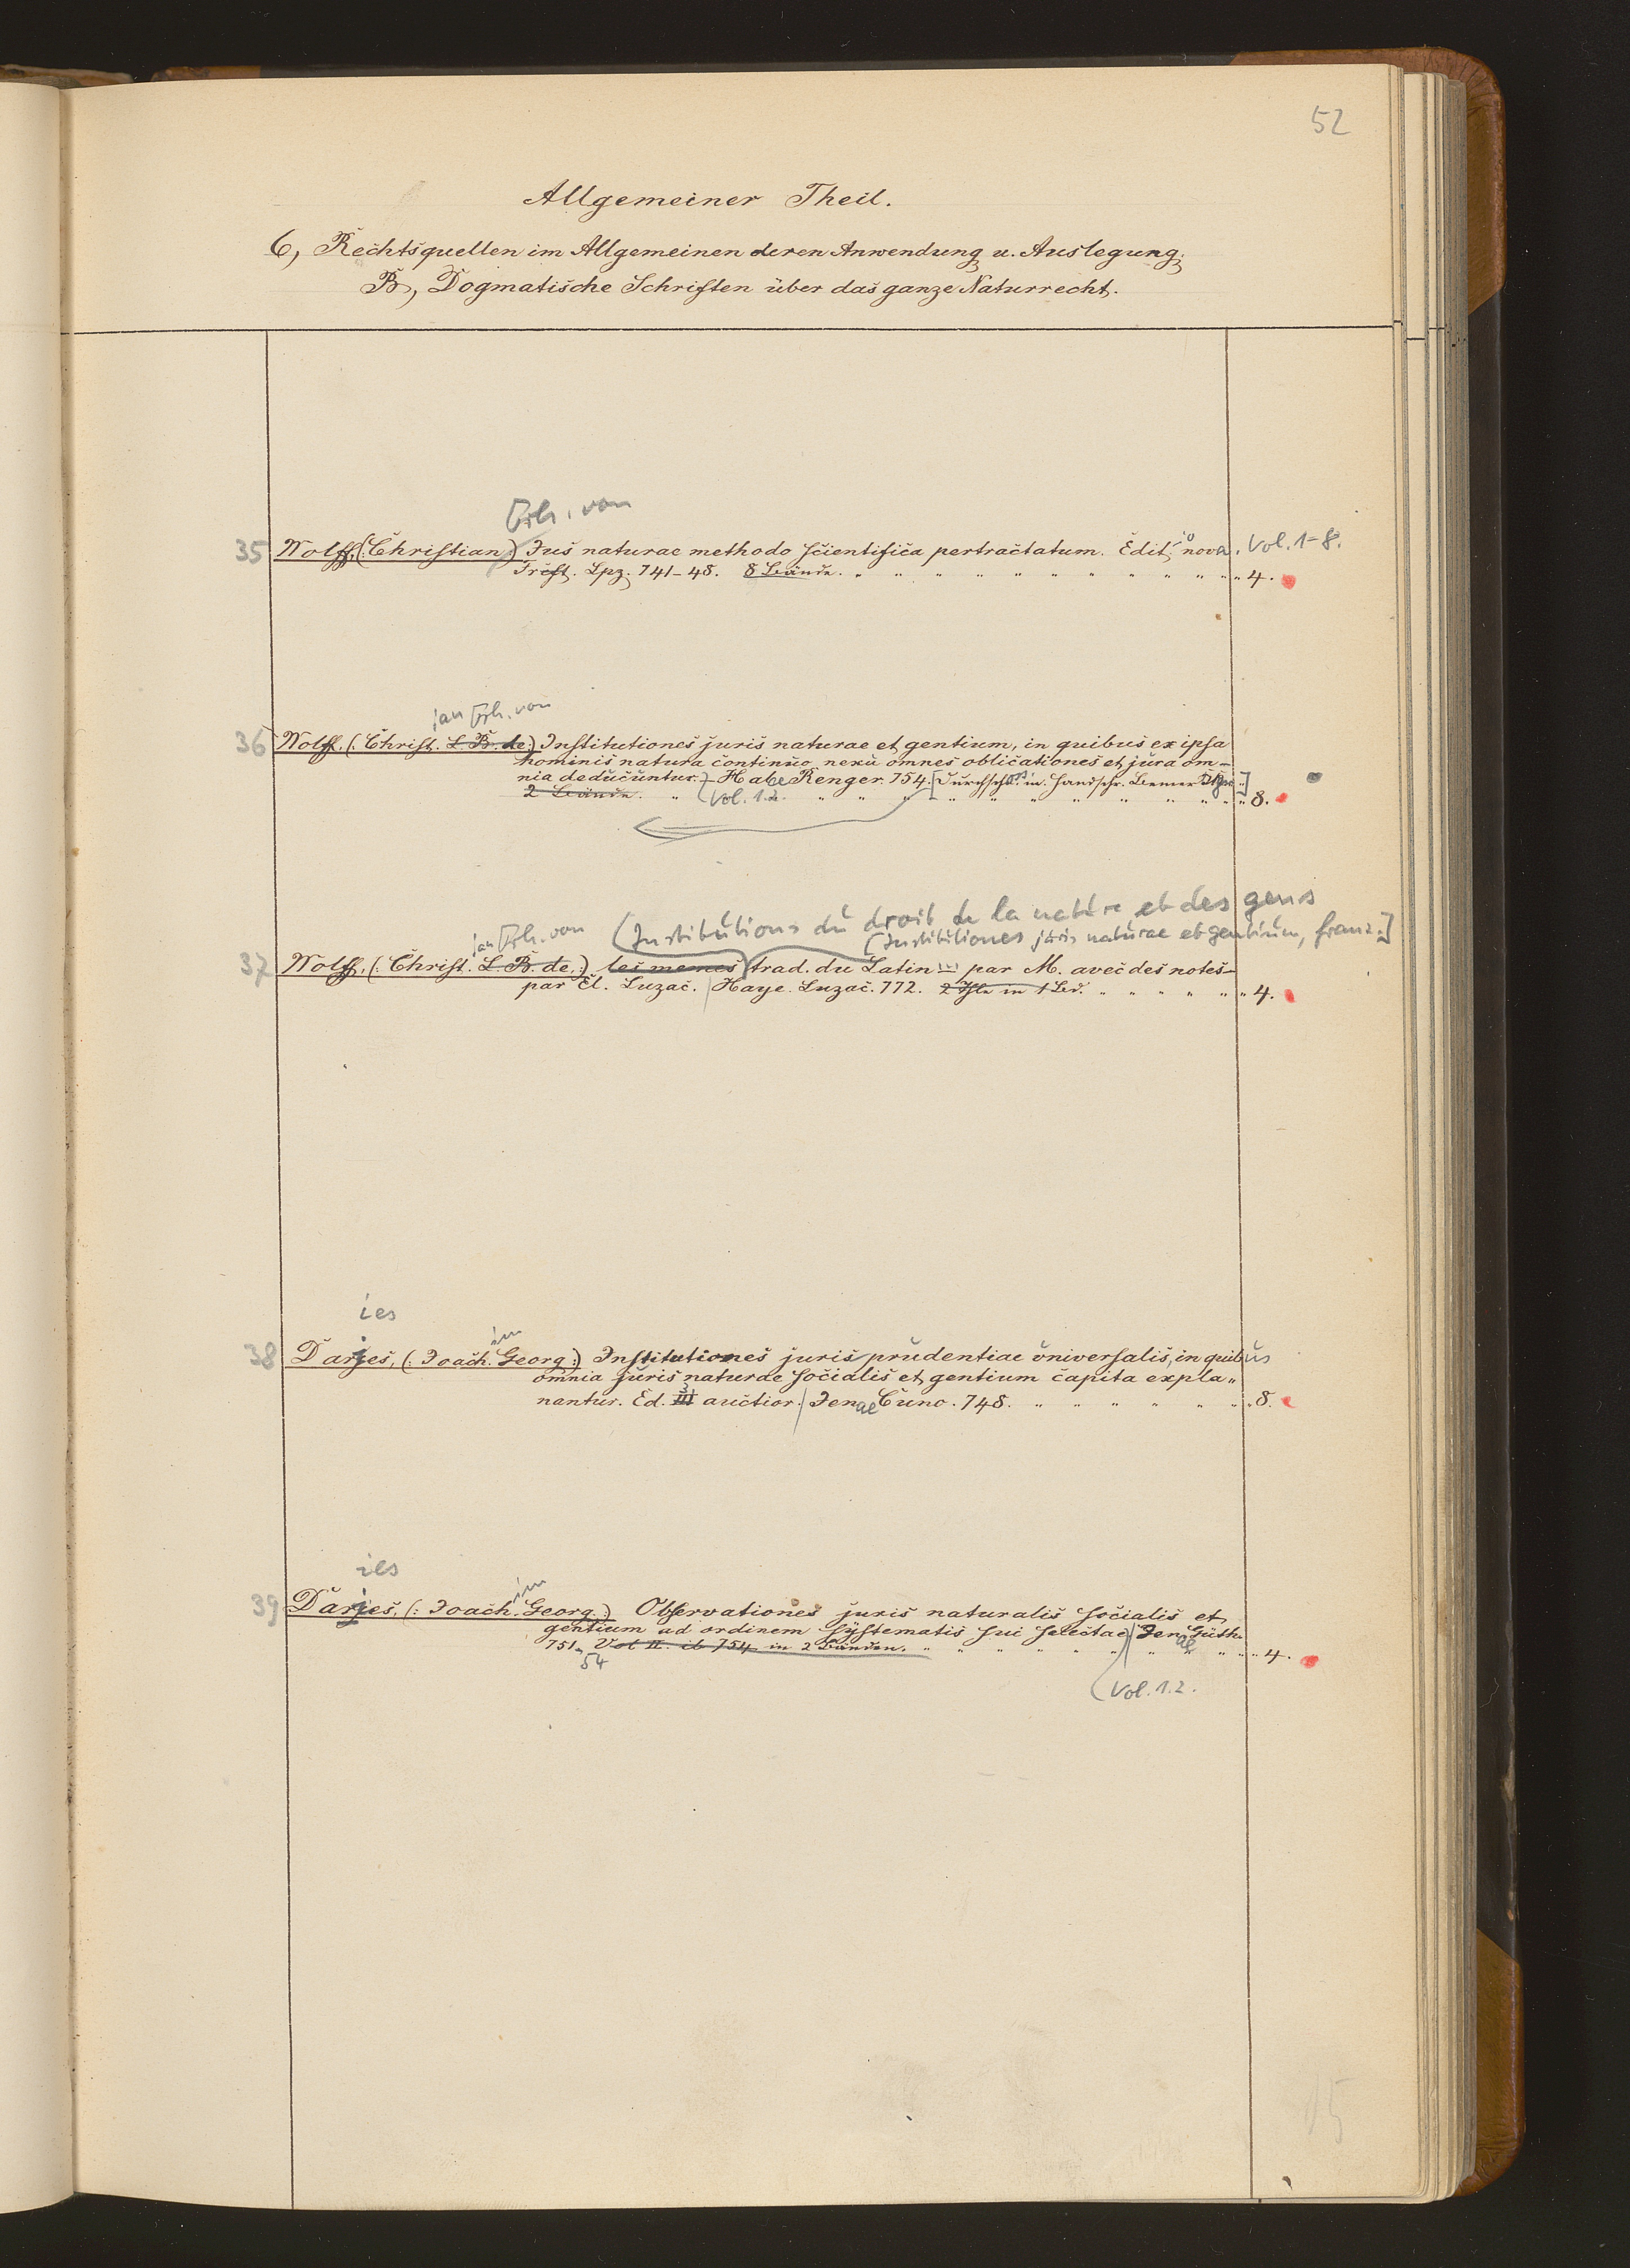 52
Allgemeiner Theil.
6, Rechtsquellen im Allgemeinen deren Anwendung u. Auslegung.
B, Dogmatische Schriften über das ganze Naturrecht.
Frh. von
35 Wolff, (: Christian) Jus naturae methodo scientifica pertractatum. Editio nova. Vol. 1-8.
Frcft. Lpz. 741-48. 8 Bände. 4.
ian Frh. von
36 Wolff, (: Christ. L. B. de:) Institutiones juris naturae et gentium, in quibus ex ipsa
hominis natura continuo nexu omnes oblicationes et jura om-
nia deducuntur. Halae Renger. 754. [Durchsch. m. handschr. Bemer
2 Bände. (Vol. 1.2. 8.
(Institutions du droit de la nature et des gens
ian Frh. von [Institutiones juris naturae et gentium, franz.]
37 Wolff, (: Christ. L. B. de:) les memes trad. du Latin par M. avec des notes
par El. Luzac. Haye. Luzac. 772. 2 Thle in 1 Bd. 4.
ies
im
38 Darjes, (: Joach. Georg:) Institutiones jurisprudentiae universalis, in quibus
omnia juris naturae socialis et gentium capita expla-
nantur. Ed. III auctior. Jenae Cuno. 748. 8.
ies
im
39 Darjes, (: Joach. Georg:) Observationes juris naturalis socialis et
gentium ad ordinem systematis sui selectae Jenae Güth.
751- Vol II. ib 754 in 2 Bänden. 4.
54
(Vol. 1.2.
15